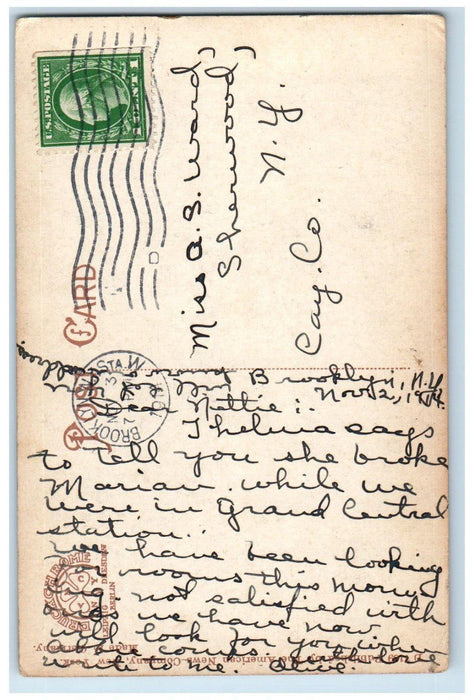 U.S. POSTAGE
1 CENT 1
Miss A. S. Ward,
Sherwood,
N. Y.
Cay. Co.
POST CARD
BROOKLYN STA. W.
N.Y.
Brooklyn, N.Y.
Nov. 12, 19
Dear Nettie:.
Thelma says
to tell you she broke
Marian while we
were in Grand Central
station..
We have been looking
rooms this morn.
not satisfied with
we have now
will look for you when
comes.
write to me. Olive.
American News Company, New York
LEIPZIG DRESDEN
BERLIN